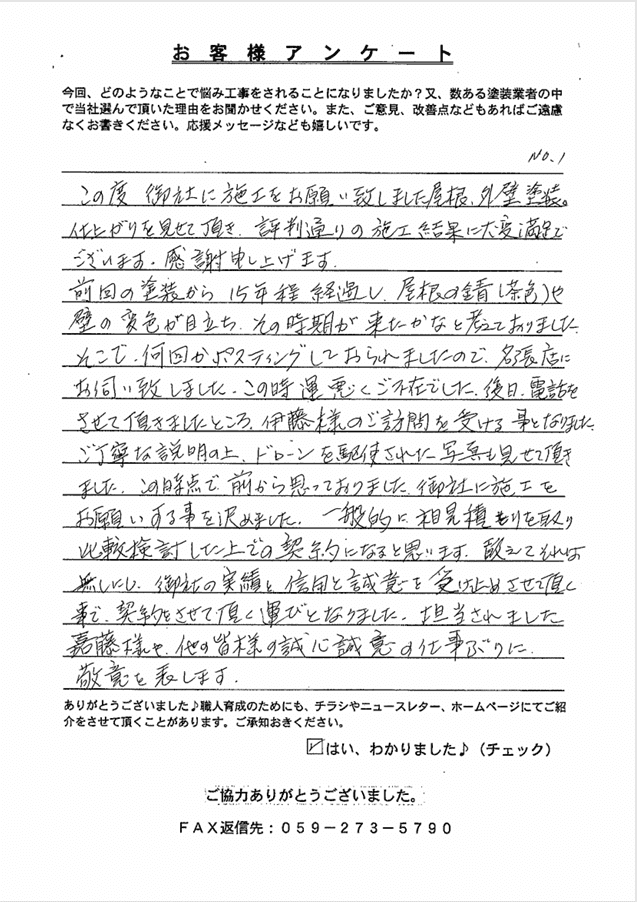 お客様アンケート
今回、どのようなことで悩み工事をされることになりましたか？又、数ある塗装業者の中
で当社選んで頂いた理由をお聞かせください。また、ご意見、改善点などもあればご遠慮
なくお書きください。応援メッセージなども嬉しいです。
NO.1
この度 御社に施工をお願い致しました屋根、外壁塗装。
仕上がりを見せて頂き、評判通りの施工結果に大変満足で
ございます。感謝申し上げます。
前回の塗装から15年程経過し、屋根の錆（茶色）や
壁の変色が目立ち、その時期が来たかなと考えておりました。
そこで、何回かポスティングしておられましたので、名張店に
お伺い致しました。この時運悪くご不在でした。後日、電話を
させて頂きましたところ、伊藤様のご訪問を受ける事となりました。
ご丁寧な説明の上、ドローンを駆使された写真も見せて頂き
ました。この時点で、前から思っておりました御社に施工を
お願いする事を決めました。一般的に相見積もりを取り
比較検討した上での契約になると思います。敢えてそれは
無しにし、御社の実績と信用と誠意を受け止めさせて頂く
事で、契約をさせて頂く運びとなりました。担当されました
嘉藤様や、他の皆様の誠心誠意の仕事ぶりに、
敬意を表します。
ありがとうございました♪職人育成のためにも、チラシやニュースレター、ホームページにてご紹
介をさせて頂くことがあります。ご承知おきください。
☑はい、わかりました♪（チェック）
ご協力ありがとうございました。
FAX返信先：059-273-5790